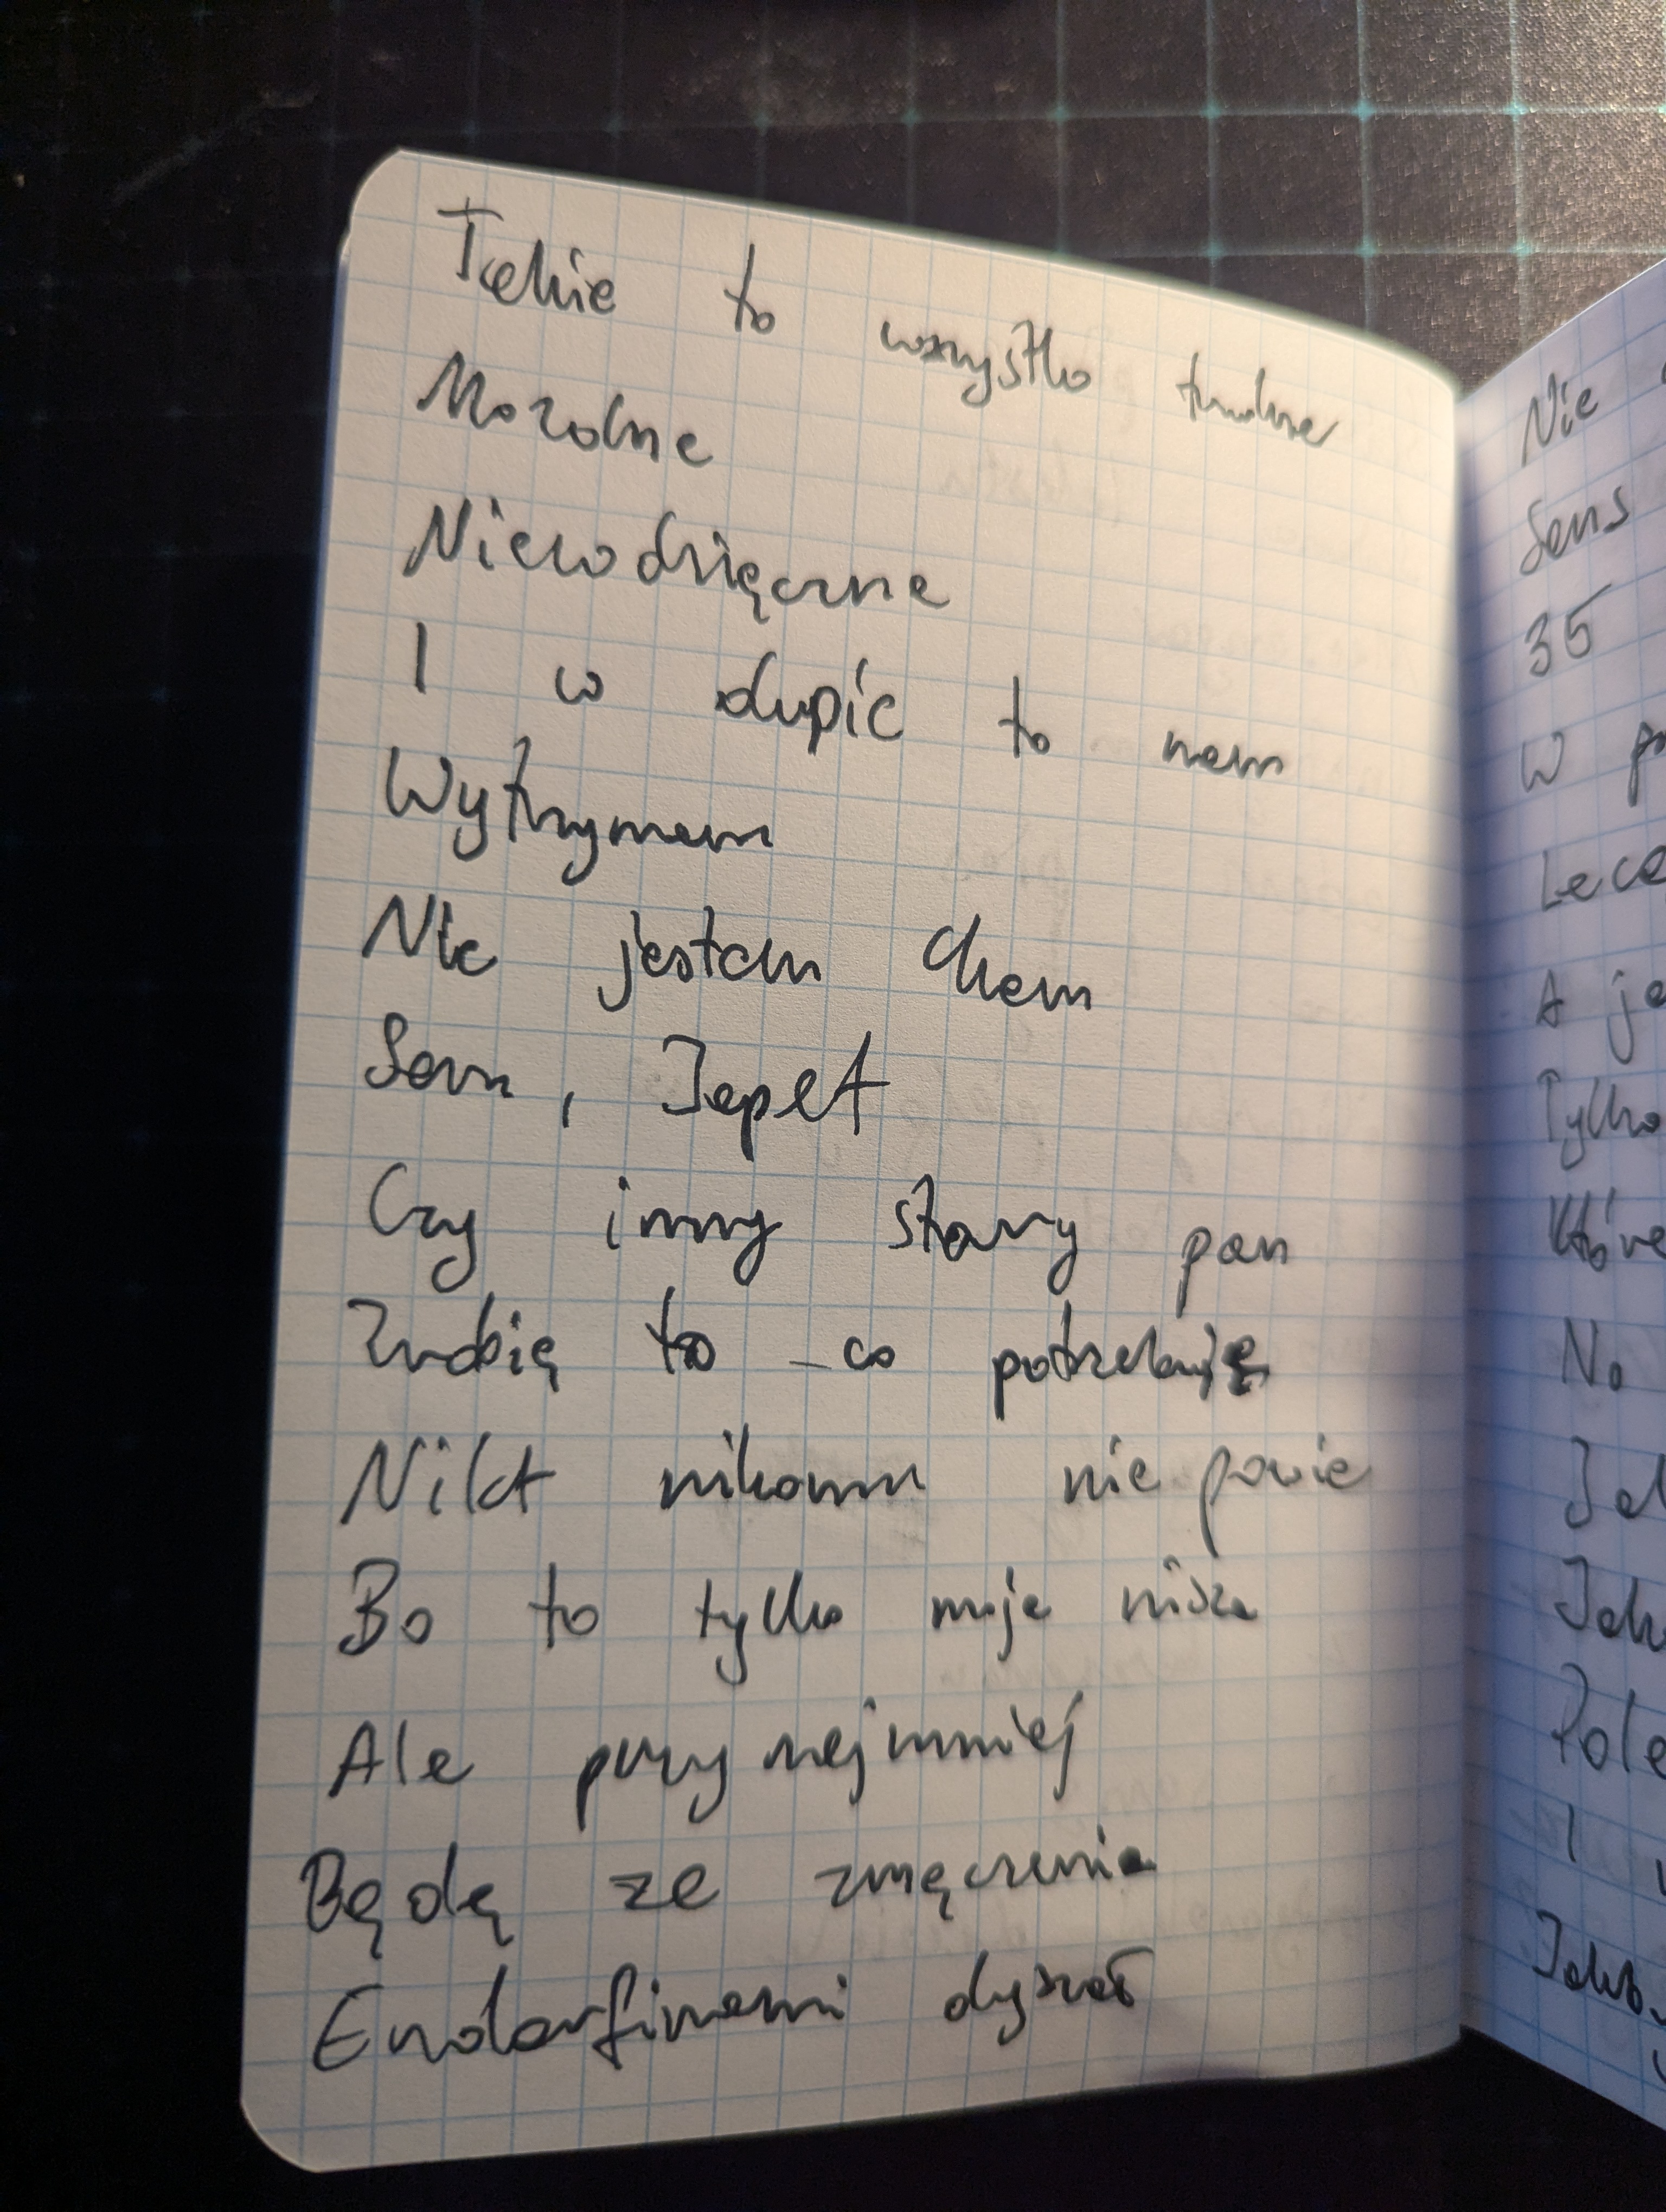 Takie to wszystko trudne
Mozolne
Niewdzięczne
I w dupie to mam
Wytrzymam
Nie jestem Cham
Sem, Jafet
Czy inny stary pan
Zrobię to co potrzebuję
Nikt nikomu nie powie
Bo to tylko moje nisza
Ale przynajmniej
Będę ze zmęczenia
Endorfinami dyszał
Nie
Sens
35
W po
Lecą
A ja
Tylko
Które
No
Jak
Pole
I